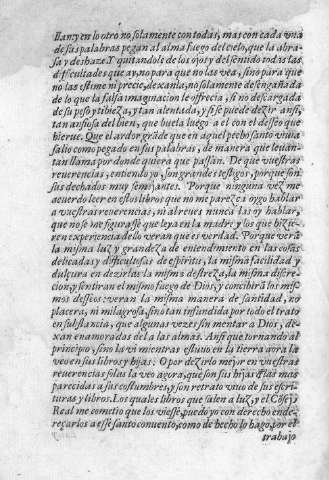 llan y en lo otro no solamente con todas, mas con cada vna
de sus palabras pegan al alma fuego del cielo, que la abra-
sa y deshaze. Y quitandole de los ojos y del sentido todas las
dificultades que ay, no para que no las vea, sino para que
no las estime ni precie, dexanla, no solamente desengañada
de lo que la falsa imaginacion le ofrecia, si no descargada
de su peso y tibieza, y tan alentada, y si se puede dezir ansi,
tan ansiosa del bien, que buela luego a el con el desseo que
hierue. Que el ardor grãde que en aquel pecho santo viuia
salio como pegado en sus palabras, de manera que leuan-
tan llama por donde quiera que passan. De que vuestras
reuerencias, entiendo yo, son grandes testigos, porque son
sus dechados muy semejantes. Porque ninguna vez me
acuerdo leer en estos libros que no me parezca oygo hablar
a vuestras reuerencias, ni al reues nunca las oy hablar,
que no se me figurasse que leya en la madre y los que hizie-
ren experiencia dello veran que es verdad. Porque verã
la misma luz y grandeza de entendimiento en las cosas
delicadas y dificultosas de espiritu, la misma facilidad y
dulçura en dezirlas, la misma destreza, la misma discre-
cion, y sentiran el mismo fuego de Dios, y concibirã los mis-
mos desseos: veran la misma manera de santidad, no
placera, ni milagrosa, sino tan infundida por todo el trato
en substancia, que algunas vezes sin mentar a Dios, de-
xan enamoradas del a las almas. Ansi que tornando al
principio, sino la vi mientras estuuo en la tierra aora la
veo en sus libros y hijas: O por dezirlo mejor en vuestras
reuerencias solas la veo agora, que son sus hijas de las mas
parecidas a sus costumbres, y son retrato viuo de sus escri-
turas y libros. Los quales libros que salen a luz, y el Cõsejo
Real me cometio que los viesse, puedo yo con derecho ende-
reçarlos a esse santo conuento, como de hecho lo hago, por el
trabajo